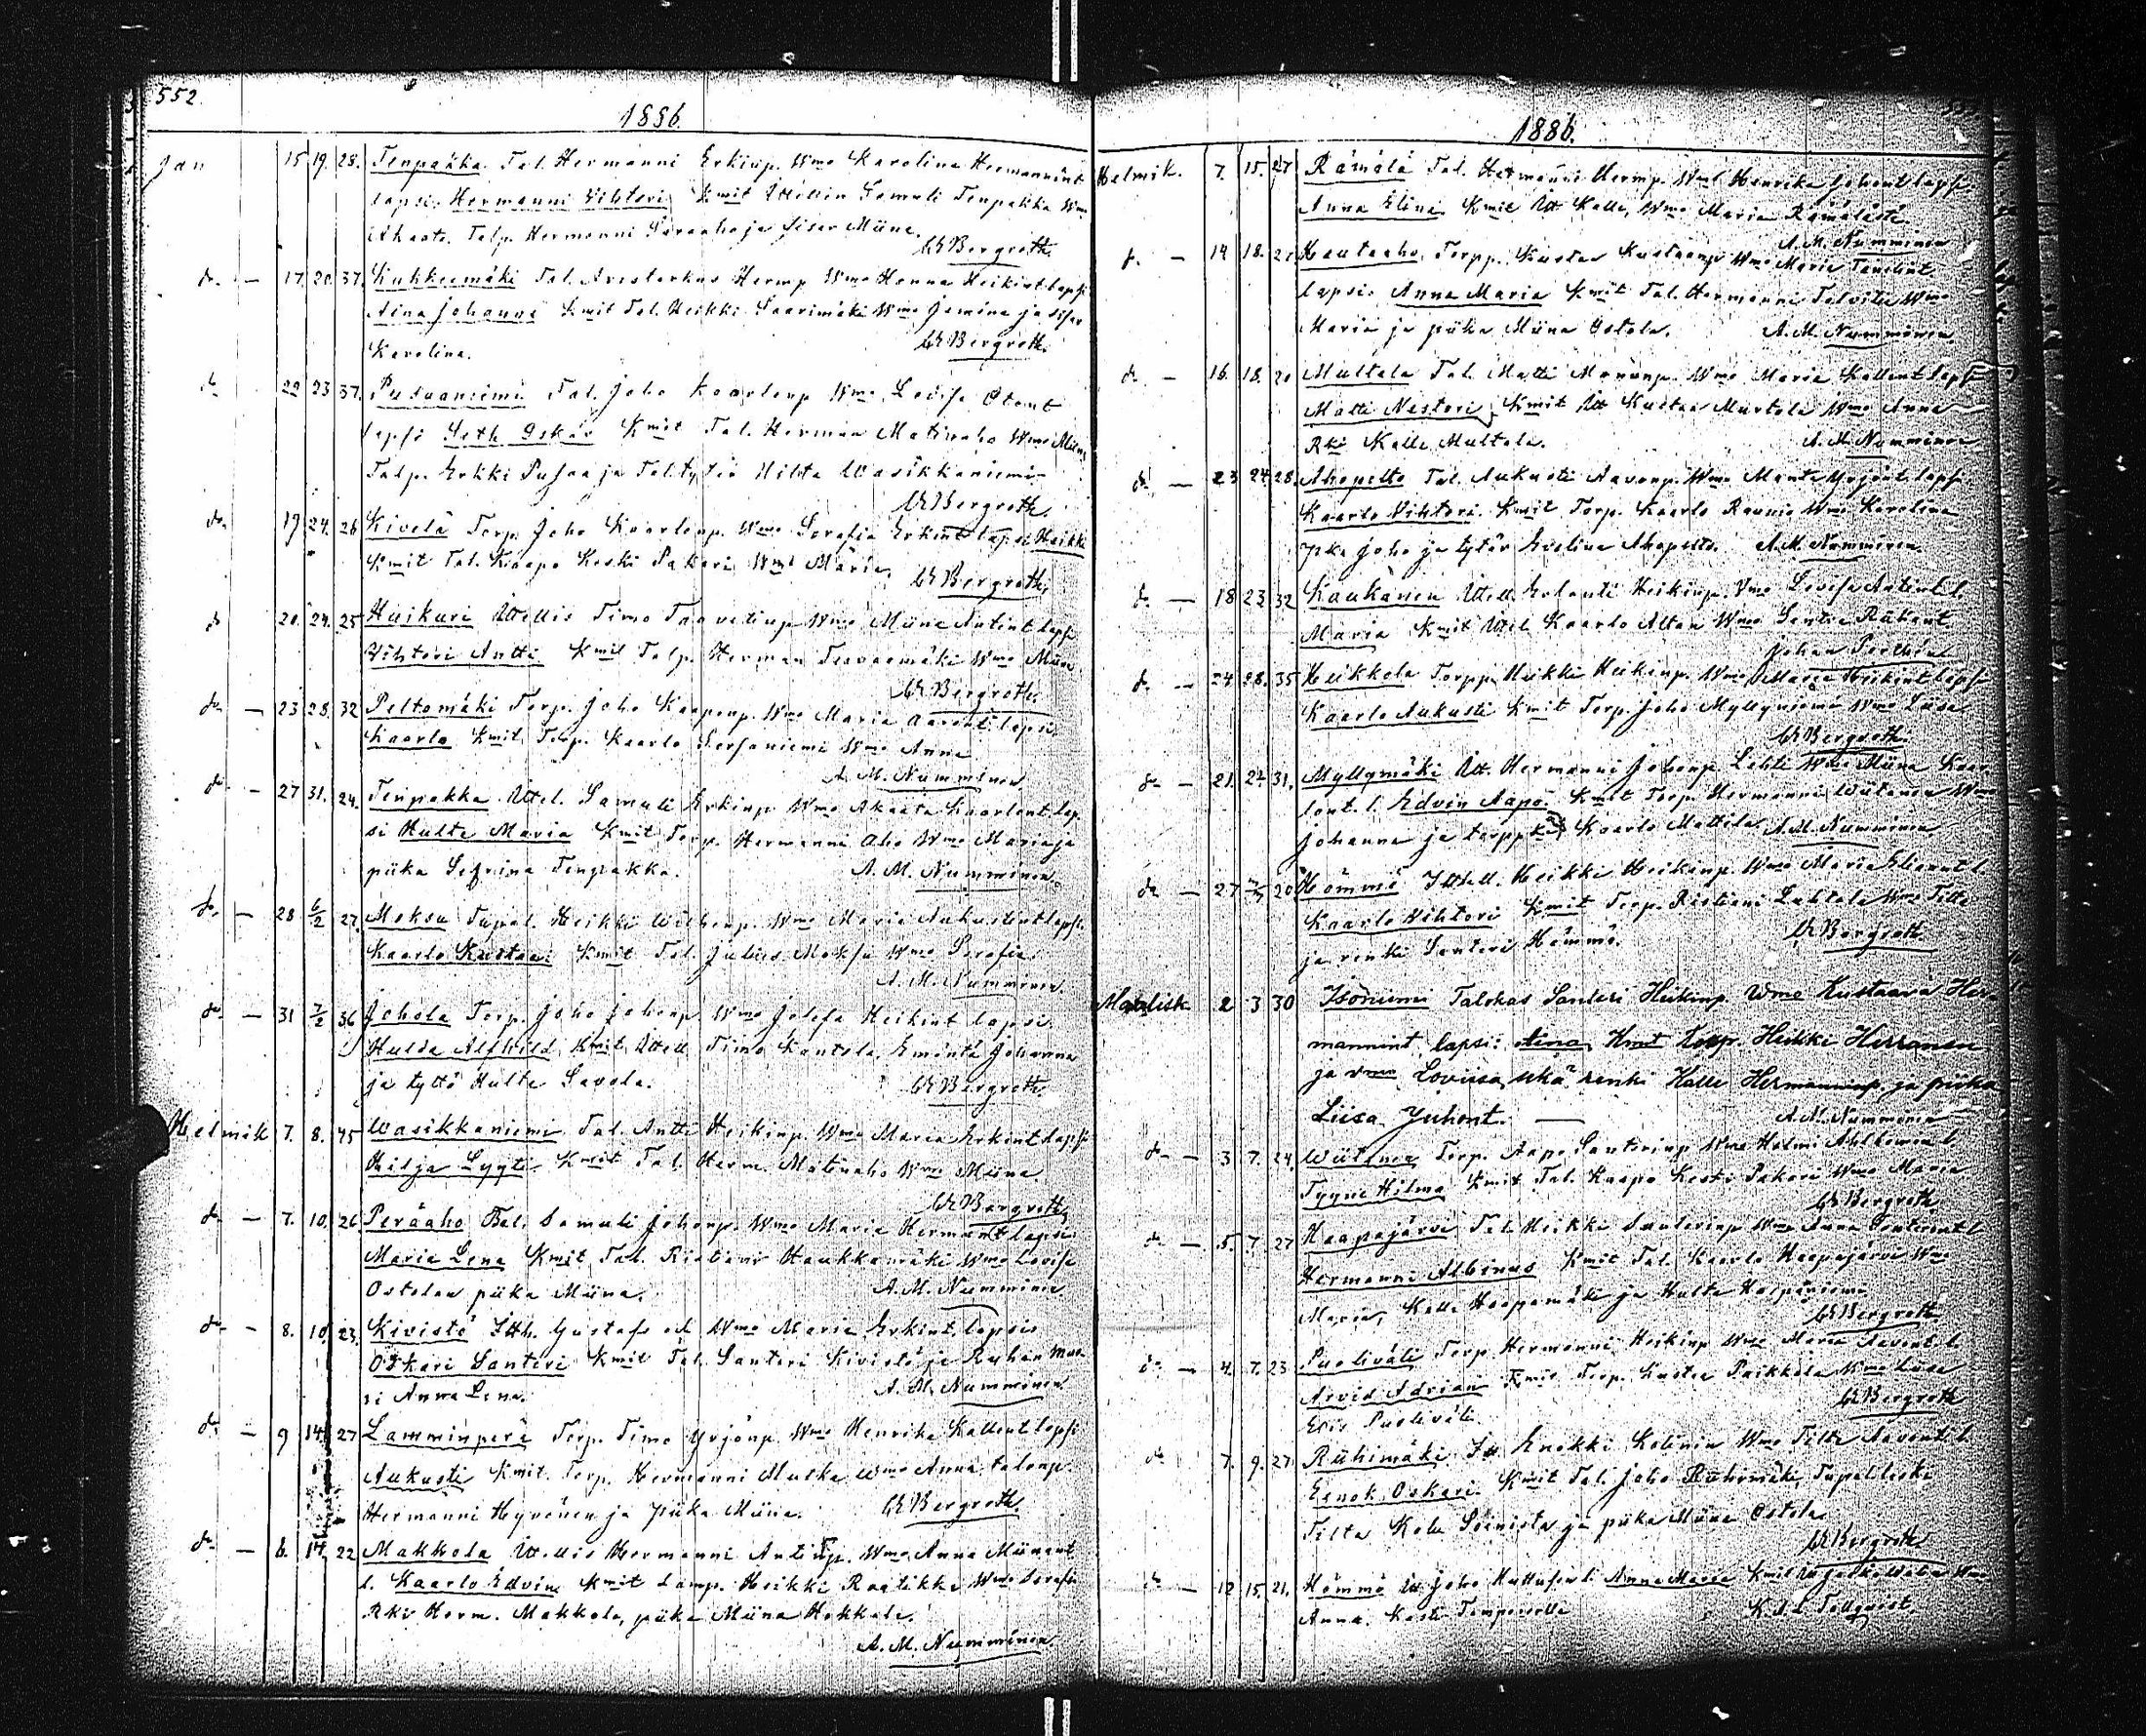 552
1886.
Jan 15 19. 28. Tenpakka Tal. Hermanni Erkinp. Wmo Karolina Hermannint
lapsi Hermanni Vihtori Kmit Ittellin Samuli Tenpakka Wmo
Akaata. Talp. Hermanni Peräaho ja sisar Miina.
Bergroth.
do — 17 20 37. Kuhkeemäki Tal. Aristarkus Hermp Wmo Hanna Heikint lapsi
Aina Johanna Kmit Tal. Heikki Saarimäki Wmo Jemina ja sisar
Karolina. Bergroth.
do 22 23 37. Pusaaniemi Tal. Joho Kaarlonp Wmo Lovisa Otont
lapsi Seth Oskar Kmit Tal. Herman Matinaho Wmo Miina
Talp. Erkki Pusaa ja Tal.tytär Hilda Wasikkaniemi
Bergroth.
do 19 24. 26 Kivelä Torp. Joho Kaarlonp. Wmo Serafia Erkint lapsi Heikki
Kmit Tal. Kaapo Keski Pakari Wmo Maria.
Bergroth.
do 20. 24. 25 Huikuri Ittellis Timo Taavetinp Wmo Miina Antint lapsi
Vihtori Antti Kmit Talp. Herman Wmo Miina
Bergroth.
do — 23 28. 32 Peltomäki Torp. Joho Kaaponp. Wmo Maria Aaront. lapsi
Kaarlo Kmit Torp. Kaarlo Wmo Anna
A. M. Numminen
do — 27 31. 24. Tenpakka Ittel. Samuli Erkinp Wmo Akaata Kaarlont lap
si Hulta Maria Kmit Torp. Hermanni Aho Wmo Maria ja
piika Sefriina Tenpakka. A. M. Numminen.
do — 28 6/2 27. Moksu Tupal. Heikki Wilhenp. Wmo Maria Aukustint lapsi.
Kaarlo Kustaa Kmit Tal. Julius Moksu Wmo Serafia
A. M. Numminen.
do — 31 7/2 36 Johola Torp. Joho Johonp Wmo Josefa Heikint lapsi.
Hulda Alfhild Kmit Ittell Timo Kantola, Emäntä Johanna
ja tyttö Hulta Savola. Bergroth.
Helmik 7. 8. 45 Wasikkaniemi Tal. Antti Heikinp. Wmo Maria Erkint lapsi
Hilja Lyyti Kmit Tal. Herm. Matinaho Wmo Miina
Bergroth
do — 7. 10. 26. Peräaho Tal. Samuli Johonp. Wmo Maria Hermant lapsi
Maria Lena Kmit Tal. Ristiani Haukkamäki Wmo Lovisa
Ostolan piika Miina. A. M. Numminen
do — 8. 10. 23. Kivistö Itth. Gustafs od Wmo Maria Erkint. lapsi
Oskari Santeri Kmit Tal. Santeri Kivistö ja
si Anna Lena. A. M. Numminen
do — 9 14. 27 Lamminperä Torp. Timo Yrjönp Wmo Henrika Kallent lapsi
Aukusti Kmit. Torp. Hermanni Mutka Wmo Anna talonp.
Hermanni Hyvönen ja piika Miina. Bergroth.
do — 6. 14 22 Makkola Ittellis Hermanni Antinp. Wmo Anna
l. Kaarlo Edvin Kmit Lamp. Heikki Raatikka Wmo Serafia
Rki Herm. Makkola, piika Miina Hokkala.
A. M. Numminen
1886.
Helmik. 7. 15. 27 Rämälä Tal. Hermanni Hermp. Wmo Henrika Johont lapsi
Anna Elina Kmit Itt Kalle, Wmo Maria Rämälästä.
A. M. Numminen
d. — 14 18. Hautaaho Torpp. Kustaa Kustaanp Wmo Maria
lapsi Anna Maria Kmit Tal. Hermanni Talvitie Wmo
Maria ja piika Miina Ostola. A. M. Numminen
do — 16. 18. 20 Multala Tal. Matti Manunp. Wmo Maria Kallent lapsi
Matti Nestori Kmit Itt Kustaa Murtola Wmo Anna
Rki Kalle Multala. A. M. Numminen
do — 23 24 28. Ahopelto Tal. Aukusti Aaronp. Wmo Manta Yrjönt. lapsi
Kaarlo Vihtori. Kmit Torp. Kaarlo Raunio Wmo Karolina
Joho ja tytär Eveliina Ahopelto. A. M. Numminen.
do — 18 23 32 Kaukanen Ittell. Erlanti Heikinp. Vmo Lovisa Antint l.
Maria Kmit Ittel Kaarlo Altan Wmo
Johan
do — 24 28. 35 Heikkola Torpp. Heikki Heikinp. Wmo Maria Heikint lapsi
Kaarlo Aukusti Kmit Torp. Joho Myllyniemi Wmo Liisa
Bergroth.
do — 21. 22 31. Myllymäki Itt. Hermanni Johonp Lehti Wmo Miina Kaar
lont. l. Edvin Aapo. Kmit Torp. Hermanni Wiitanen Wmo
Johanna ja torpp Kaarlo Mattila A. M. Numminen
do — 27 20 Hömmö Ittell. Heikki Heikinp. Wmo Maria Eliant l
Kaarlo Vihtori Kmit Torp. Ristiani Luhtala Wmo Tilta
ja renki Santeri Hömmö. Bergroth.
Maalisk 2 3 30 Isoniemi Talokas Santeri Heikinp. Wmo Kustaava Her-
mannint. lapsi: Aina Kmit Torp. Heikki Hirranen
ja vmo Loviisa, sekä renki Kalle Hermanninp. ja piika
Liisa Juhont. — A. M. Numminen
do — 3 7. 24. Wiitanen Torp. Aapo Santerinp Wmo Helmi l
Tyyne Hilma Kmit Tal. Kaapo Keski Pakari Wmo Maria
Bergroth
do — 5. 7. 27 Haapajärvi Tal. Heikki Santerinp Wmo Anna Santerint l
Hermanni Albinus Kmit Tal. Kaarlo Haapajärvi Wmo
Maria, Kalle Haapamäki ja Hulta Haapaniemi
Bergroth
do — 4. 7. 23 Puoliväli Torp. Hermanni Heikinp Wmo Maria Aaront l.
Arvid Adrian Kmit Torp. Kustaa Paikkala Wmo Liisa
Puoliväli. Bergroth
do 7. 9. 27. Riihimäki Itt Enokki Wmo Tilta Aaront l.
Eenok Oskari. Kmit Tal. Joho Riihimäki, Tupalleski
Tilta ja piika Miina Ostola
Bergroth
do — 12 15. 21. Hömmö Itt Joho l. Anna Maria Kmit Wmo
Anna. K. J. L. Tollquist.